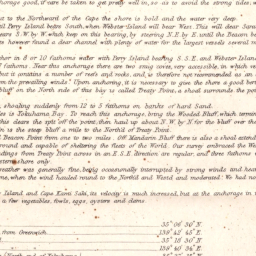 chorage good, if care be taken to get pretty well in, so as to avoid the strong tides,
st to the Northward of the Cape the shore is bold and the water very deep.
ntil Perry Island bears South, when Webster Island will bear West. This will clear Sara
ears S.W. by W. which keep on this bearing, by steering N.E. by E. until the Beacon be
re however found a clear channel with plenty of water for the largest vessels several te
chor in 8 or 10 fathoms water with Perry Island bearing S.S.E. and Webster Island
7 fathoms. Near this anchorage there are two snug coves, very accessible, in which ve
but it contains a number of reefs and rocks, and is therefore not recommended as an
m the prevailing winds. Upon anchoring, it is necessary to give the shore a good ber
bluff on the North side of this bay is called Treaty Point, a shoal surrounds the po
, shoaling suddenly from 12 to 5 fathoms on banks of hard Sand.
ies is Yokuhama Bay. To reach this anchorage, bring the Wooded Bluff, which termin
this clears the spit off the point, then haul up about N.W. by N. for the bluff over the
n is the steep bluff a mile to the North'd of Treaty Point.
d Beacon Point from one to two miles. Off Mandarin Bluff there is also a shoal extend
round and capable of sheltering the fleets of the World. Our survey embraced the We
ndings from Treaty Point across in an E.S.E. direction are regular, and three fathoms
stern shore only.
reather was generally fine, being occasionally interrupted by strong winds and hea
me, when the wind hauled round to the North'd and West'd and moderated. We had no
Island and Cape Kami Saki, its velocity is much increased, but at the anchorage in
a few vegetables, fowls, eggs, oysters and clams
35° 06' 30" N
from Greenwich
35° 18' 30" N